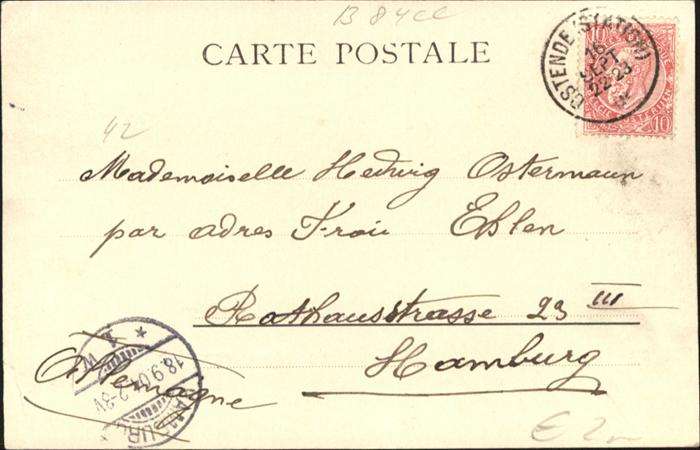 B 84cc
CARTE POSTALE
OSTENDE (STATION)
16
SEPT
22-23
10
10
42
Mademoiselle Hedwig Ostermann
par adres Frau Ehlen
Rathausstrasse 23 III
Hamburg
Allemagne
HAMBURG
18.9.
2-3V